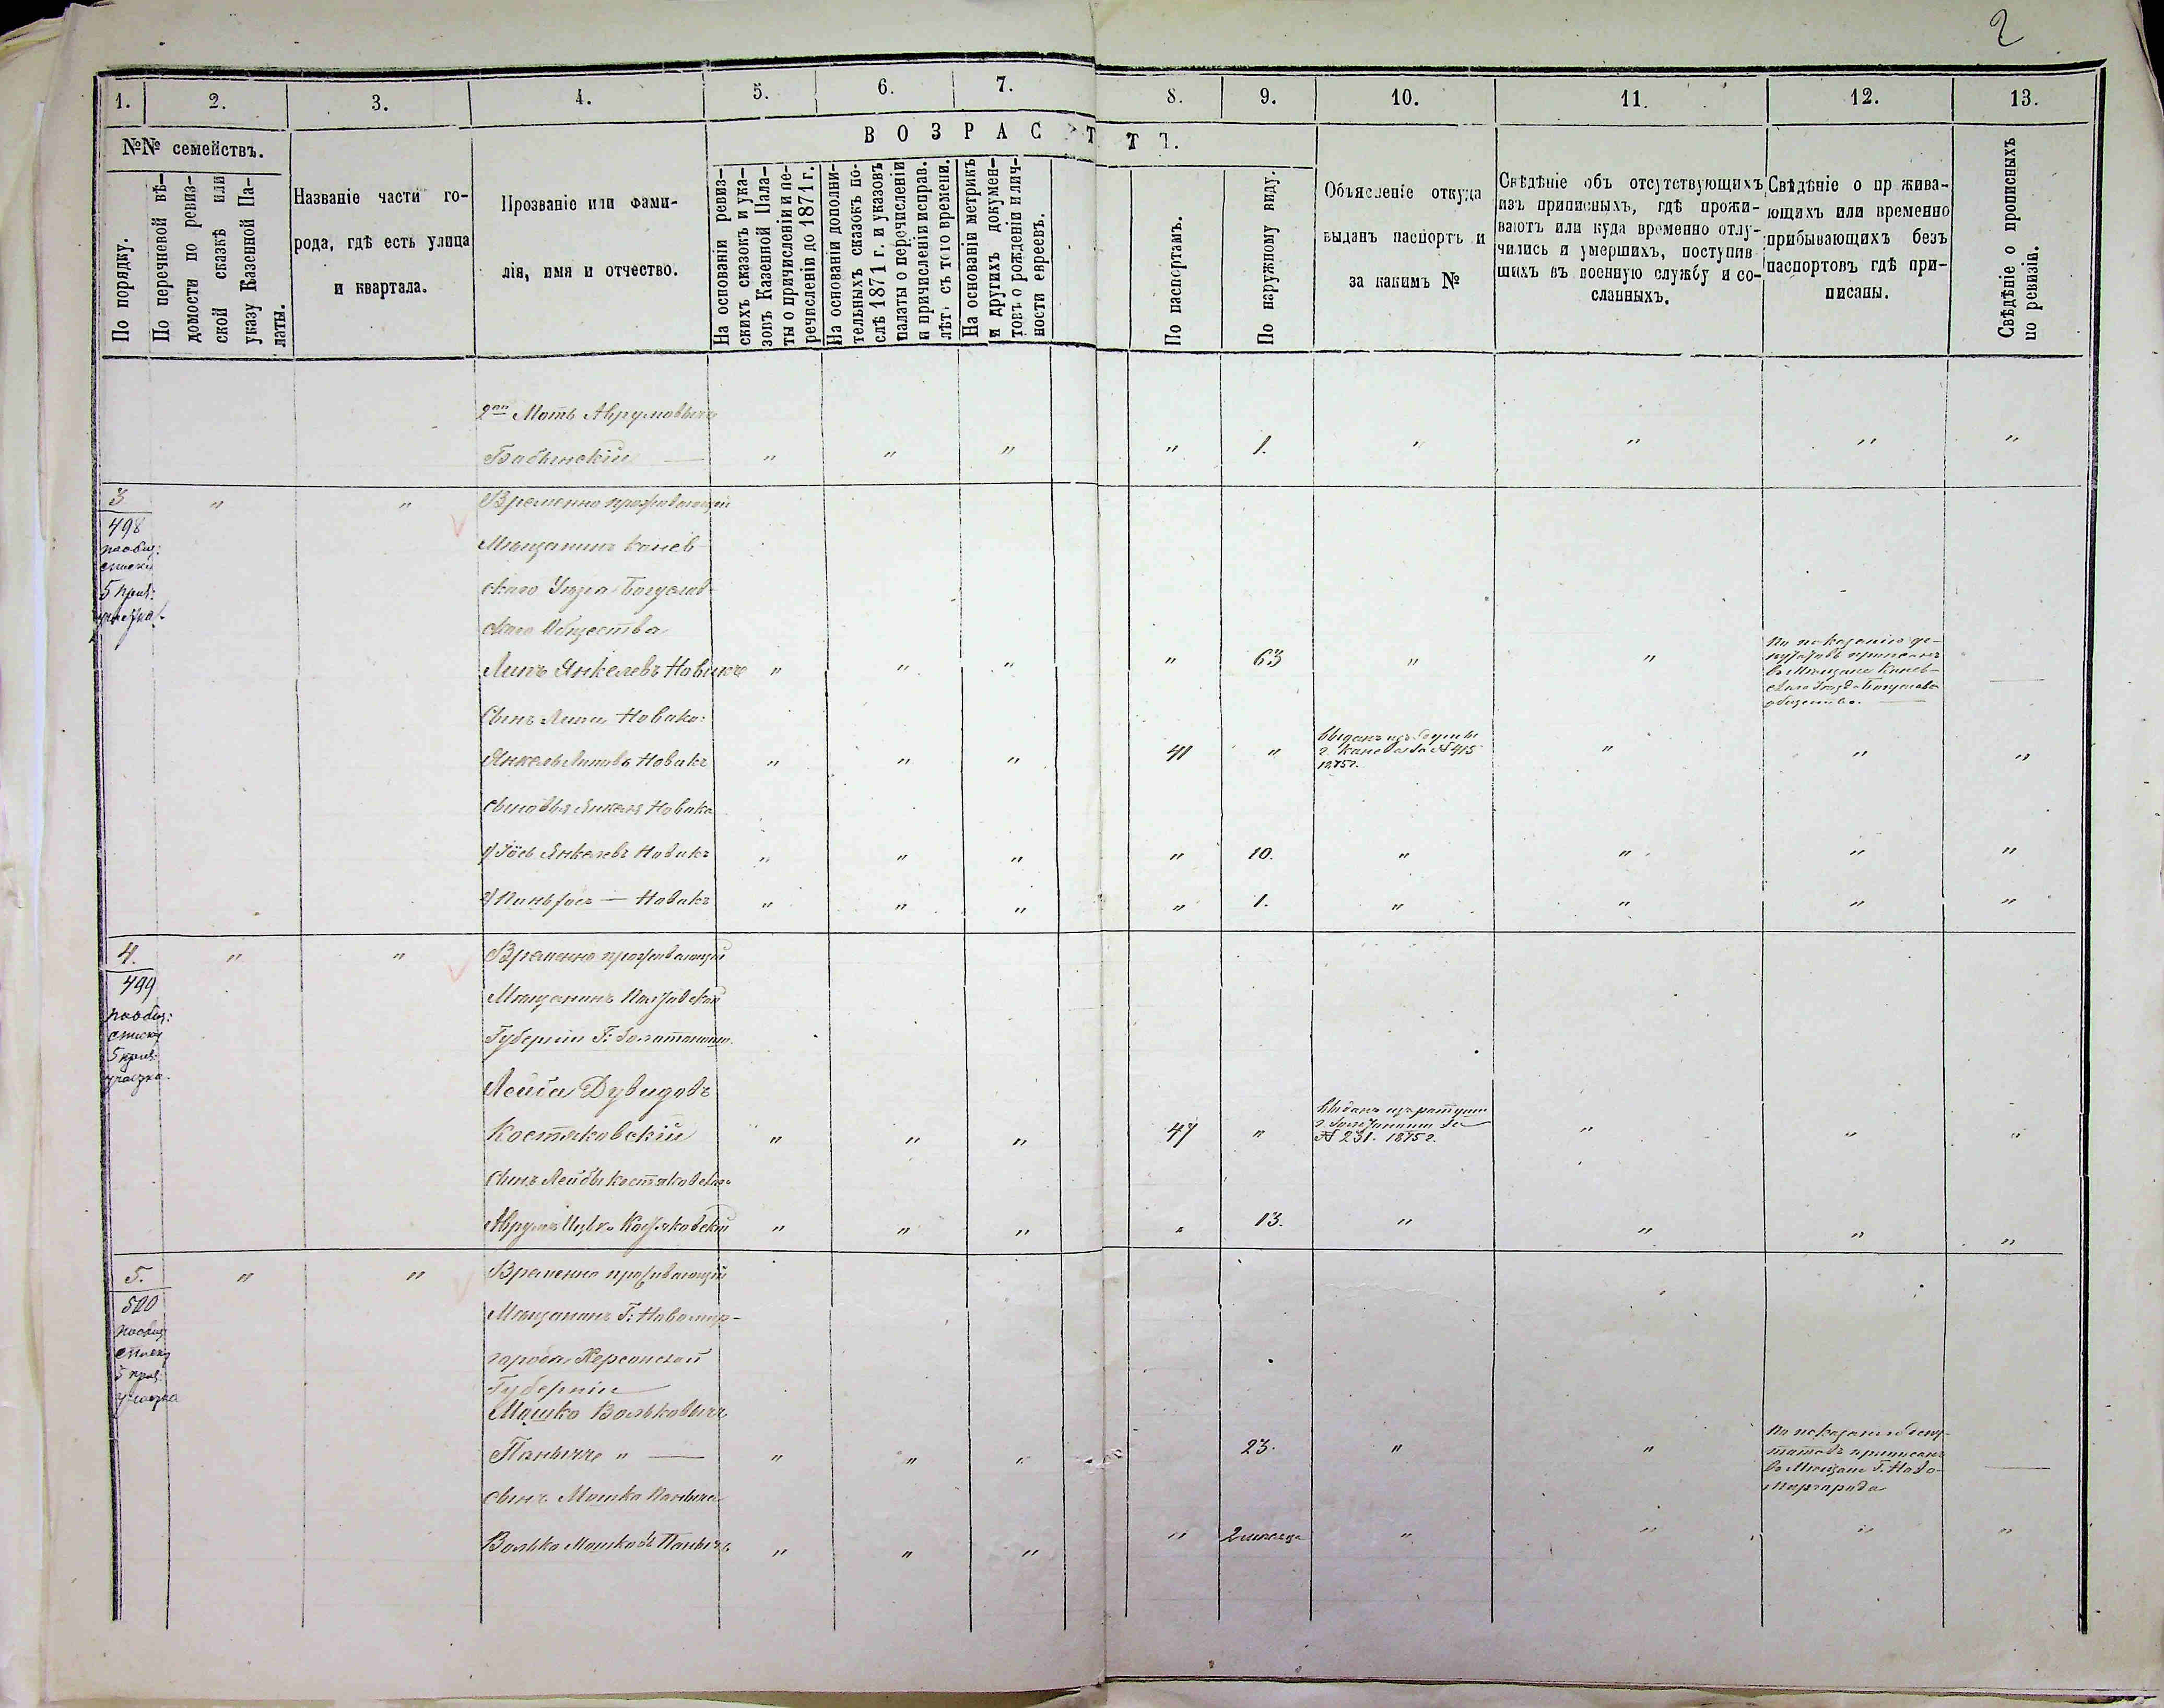 2
1. 2. 3. 4. 5. 6. 7. 8. 9. 10. 11. 12. 13.
№№ семействъ.
По порядку.
По перечневой вѣ-
домости по ревиз-
ской сказкѣ или
указу Казенной Па-
латы.
Названіе части го-
рода, гдѣ есть улица
и квартала.
Прозваніе или фами-
лія, имя и отчество.
ВОЗРАСТЪ.
На основаніи ревиз-
скихъ сказокъ и ука-
зовъ Казенной Пала-
ты о причисленіи и пе-
речисленіи до 1871 г.
На основаніи дополни-
тельныхъ сказокъ по-
слѣ 1871 г. и указовъ
палаты о перечисленіи
и причисленіи исправ.
лѣт. съ того времени.
На основаніи метрикъ
и другихъ докумен-
товъ о рожденіи и лич-
ности евреевъ.
По паспортамъ.
По наружному виду.
Объясленіе откуда
выданъ паспортъ и
за какимъ №
Свѣдѣніе объ отсутствующихъ
изъ приписныхъ, гдѣ прожи-
ваютъ или куда временно отлу-
чились и умершихъ, поступив
шихъ въ военную службу и со-
сланныхъ.
Свѣдѣніе о пр жива-
ющихъ или временно
прибывающихъ безъ
паспортовъ гдѣ при-
писаны.
Свѣдѣніе о прописныхъ
по ревизіи.
Аврумовичъ
Бабинскій — " " " " 1. " " " "
3 " " Временно проживающій
498
Мѣщанинъ Канев-
5 приз:
участка.
скаго Уѣзда Богуслав-
скаго Общества
Янкелевъ Новакъ " " " " 63 " "
По показанію де-
путатовъ приписанъ
въ Мѣщане Канев-
скаго Уѣзда Богуслав
общества. —
Сынъ Новака:
Янкель Липовъ Новакъ " " " 41 "
Выданъ изъ Думы
г. Канева за № 415
1875 г.
" " "
Сыновья Янкеля Новака
1) Янкелевъ Новакъ " " " " 10. " " " "
2) — Новакъ " " " " 1. " " " "
4. " " Временно проживающій
499
Мѣщанинъ Полтавской
списку
5 приз.
участка.
Губерніи Г: Золотоноши
Лейба Дувидовъ
Костяковскій " " " 47 "
Выданъ изъ ратуши
г Золотоноши за
№ 231. 1875 г.
" " "
Сынъ Лейбы Костяковскаго
Аврумъ Костяковскій " " " " 13. " " " "
5. " " Временно проживающій
500
Мѣщанинъ Г: Новомир-
5 приз.
участка
города Херсонской
Губерніи
Мошко Вольковичъ
Панычъ " — " " " 23. " "
По показанію депу-
татовъ приписанъ
въ Мѣщане Г. Ново-
миргорода
—
Сынъ Мошка Паныча
Волько Мошковъ Панычъ " " " " 2 мѣсяца " " " "